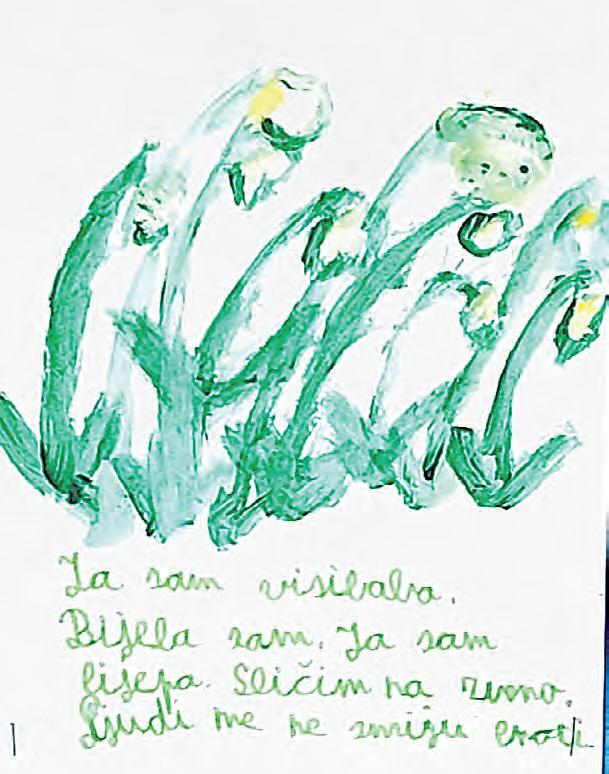 Ja sam visibaba.
Bijela sam. Ja sam
lijepa. Sličim na zvono.
Ljudi me ne smiju